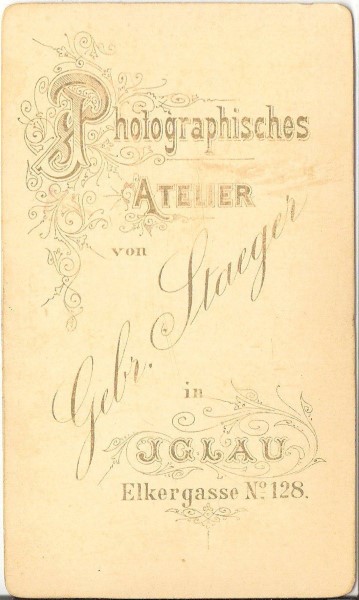 Photographisches
ATELIER
von
Gebr. Staeger
in
IGLAU
Elkergasse No. 128.